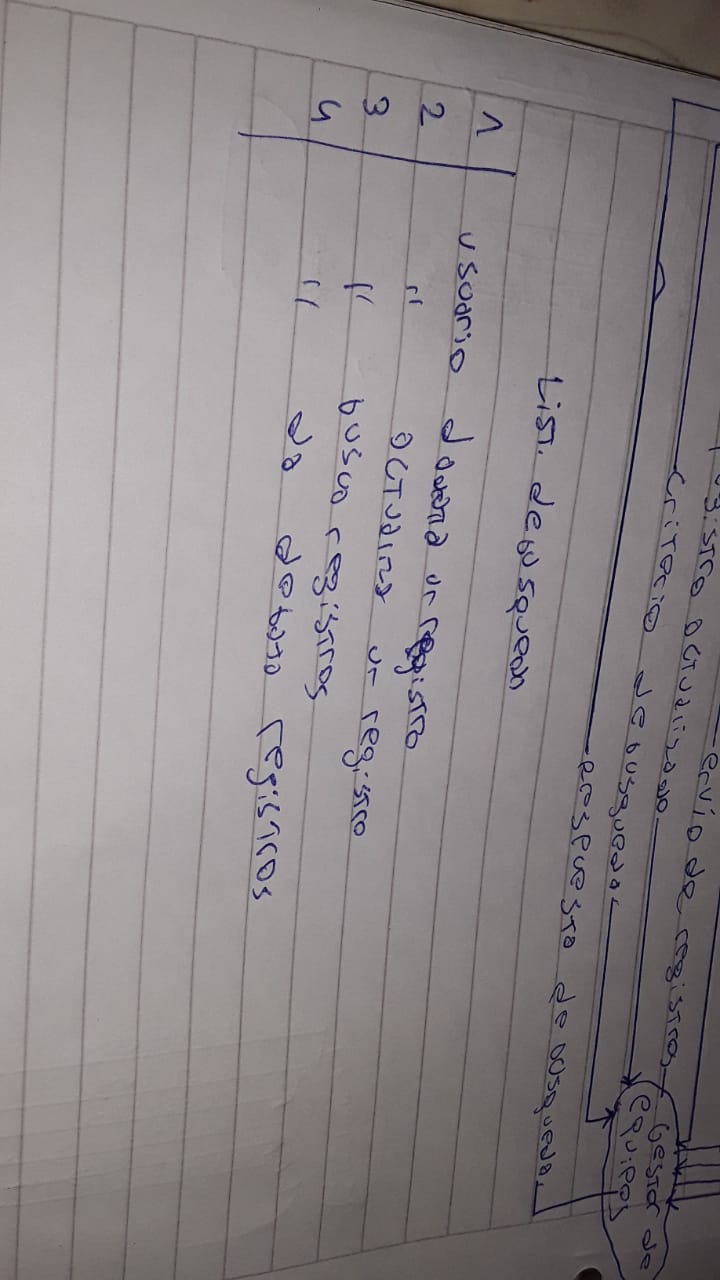 envio de registros
registro actualizado
criterio de busqueda.
respuesta de busqueda.
Gestor de
equipos
List. de busqueda
1 usuario devena un registro
2 " actualiza un registro
3 " busca registros
4 " da debaja registros